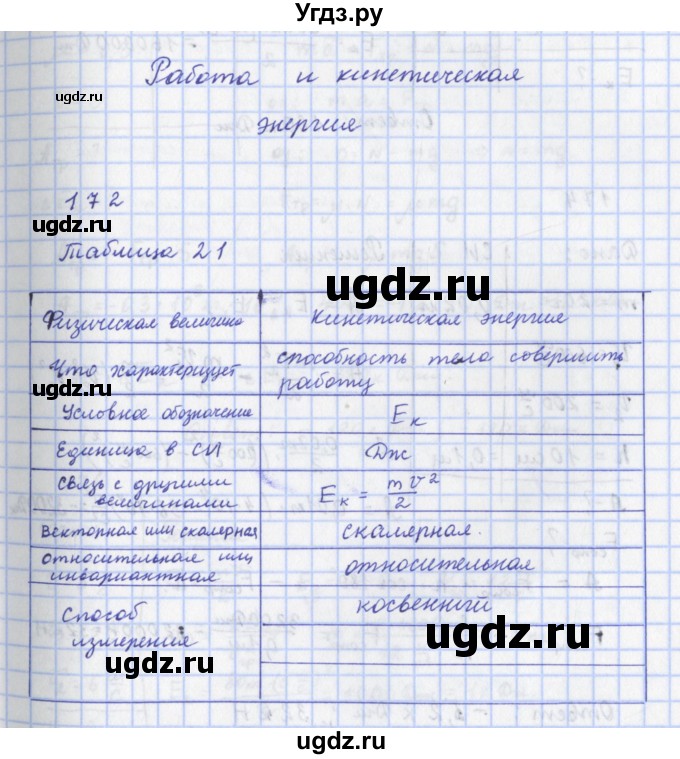 Угдз.ру
Работа и кинетическая
ugdz.ru
энергия
172
ugdz.ru
Таблица 21
ugdz.ru
Физическая величина Кинетическая энергия
Что характеризует способность тела совершить
работу
ugdz.ru
Условное обозначение Eк
Единица в СИ Дж
Связь с другими
величинами Eк = mv²/2
Векторная или скалярная скалярная.
Относительная или
инвариантная относительная
Способ
измерения косвенный
ugdz.ru
ugdz.ru
Ответ:
ugdz.ru